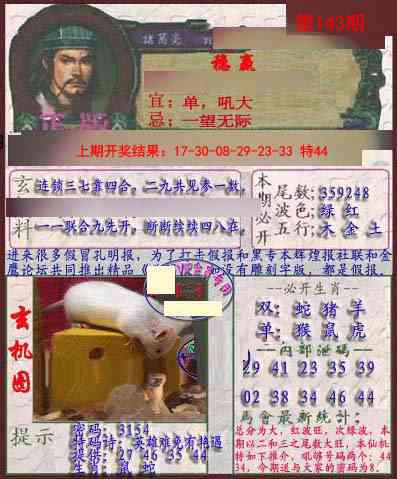 第143期
諸葛亮
稳赢
正版
宜：单，吼大
忌：一望无际
上期开奖结果：17-30-08-29-23-33 特44
玄
料
连锁三七靠四合，二九共见参一数，
一一联合九先开，断断续续四八在，
本期必开
尾数：359248
波色：绿 红
五行：木 金 土
进来很多假冒孔明报，为了打击假报和黑专本辉煌报社联和金
鹰论坛共同推出精品《
如没有雕刻字版，都是假报，
玄机图
必开生肖
双：蛇 猪 羊
单：猴 鼠 虎
内部泄码
29 41 23 35 39
02 38 34 46 44
馬會最新統計：
总分为大，红波旺，次绿波，本
期以二和三之尾数大旺，本仙机
特如下推介，吼够号码两个：44
34，今期送与大家的密码为8．
提示
密码：3154
特码诗：英雄难免有艳遇
提供：27 46 35 44
生肖：鼠 蛇